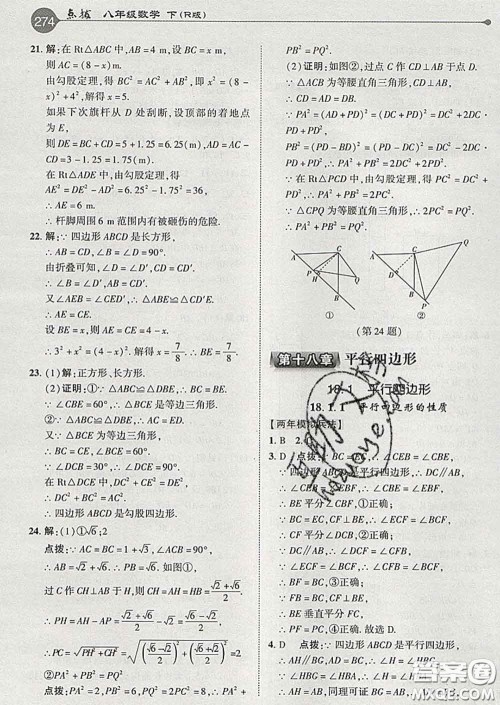 274 点拨 八年级数学 下(R版)
21. 解:在 Rt△ABC 中,设 BC=x m,
则 AC=(8-x)m.
由勾股定理,得 BC²=AC²+AB²,
x²=(8-x)²+4²,解得 x=5.
如果下次旗杆从 D 处刮断,设顶部的着地点
为 E,
则 DE=BC+CD=5+1.25=6.25(m),AD=AC-
CD=3-1.25=1.75(m).
在 Rt△ADE 中,由勾股定理,得
AE²=DE²-AD²=6.25²-1.75²=36,
∴AE=6 m.
∴杆脚周围6 m范围内有被砸伤的危险.
22. 解:∵四边形 ABCD 是长方形,
∴AB=CD,∠B=∠D=90°.
由折叠可知,∠D=∠D′,CD=CD′,
∴∠B=∠D′,AB=CD′.
又∵∠AEB=∠CED′,∴△ABE≌△CD′E.
∴AE=CE.
设 BE=x,∵AB²+BE²=AE²,
∴3²+x²=(4-x)².∴x=7/8.∴BE=7/8.
23. (1)解:正方形、长方形.
(2)证明:①∵△ABC≌△DBE,
∴BC=BE.
∵∠CBE=60°,
∴△BCE是等边三角形.
②∵△ABC≌△DBE,
∴AC=DE.
∵△BCE是等边三角形,
∴BC=CE,∠BCE=60°.
∵∠DCB=30°,∴∠DCE=90°.
∴在 Rt△DCE 中,
DC²+CE²=DE².
∴DC²+BC²=AC².
∴四边形 ABCD 是勾股四边形.
24. 解:(1)①√6;2
点拨:∵AC=BC=1+√3,∠ACB=90°,
∴AB=√2+√6.
过 C 作 CH⊥AB 于 H,则 CH=AH=(√2+√6)/2.
∴PH=AH-AP=(√2+√6)/2-√2=(√6-√2)/2.
∴PC=√(PH²+CH²)=√(((√2+√6)/2)²+((√6-√2)/2)²)=2.
②PA²+PB²=2PC²
点拨:∵PA²=2,PB²=6,PC²=PQ²=4,∴PA²+
PB²=PQ².
(2)证明:如图②,过 C 作 CD⊥AB 于点 D.
∵△ABC为等腰直角三角形,CD⊥AB,
∴CD=AD=DB.
∵PA²=(AD+PD)²=(DC+PD)²=DC²+2DC·
PD+PD²,
PB²=(PD-BD)²=(PD-DC)²=DC²-2DC·
PD+PD²,∴PA²+PB²=2DC²+2PD².
∵在 Rt△PCD 中,由勾股定理,得 PC²=DC²+
PD²,∴PA²+PB²=2PC².
∵△CPQ为等腰直角三角形,
∴2PC²=PQ².∴PA²+PB²=PQ².
A C Q P H B
①
A C Q D B P
②
(第24题)
第十八章 平行四边形
18.1 平行四边形
18.1.1 平行四边形的性质
1. B 2.
3. D 点拨:
∴∠CEB=∠EBF,
∴BE平分∠CBF,①正确;
∵BC=EC,CF⊥BE,
∴∠ECF=∠BCF,
∴CF平分∠DCB,②正确;
∵DC∥AB,
∴∠DCF=∠CFB,
∵∠ECF=∠BCF,
∴∠CFB=∠BCF,
∴BF=BC,
∴③正确;
∵FB=BC,CF⊥BE,
∴BE垂直平分CF,
∴PF=PC,④正确.故选D.
4. D 点拨:∵四边形 ABCD 是平行四边形,
∴AH∥BG,AD=BC,∴∠H=∠HBG.